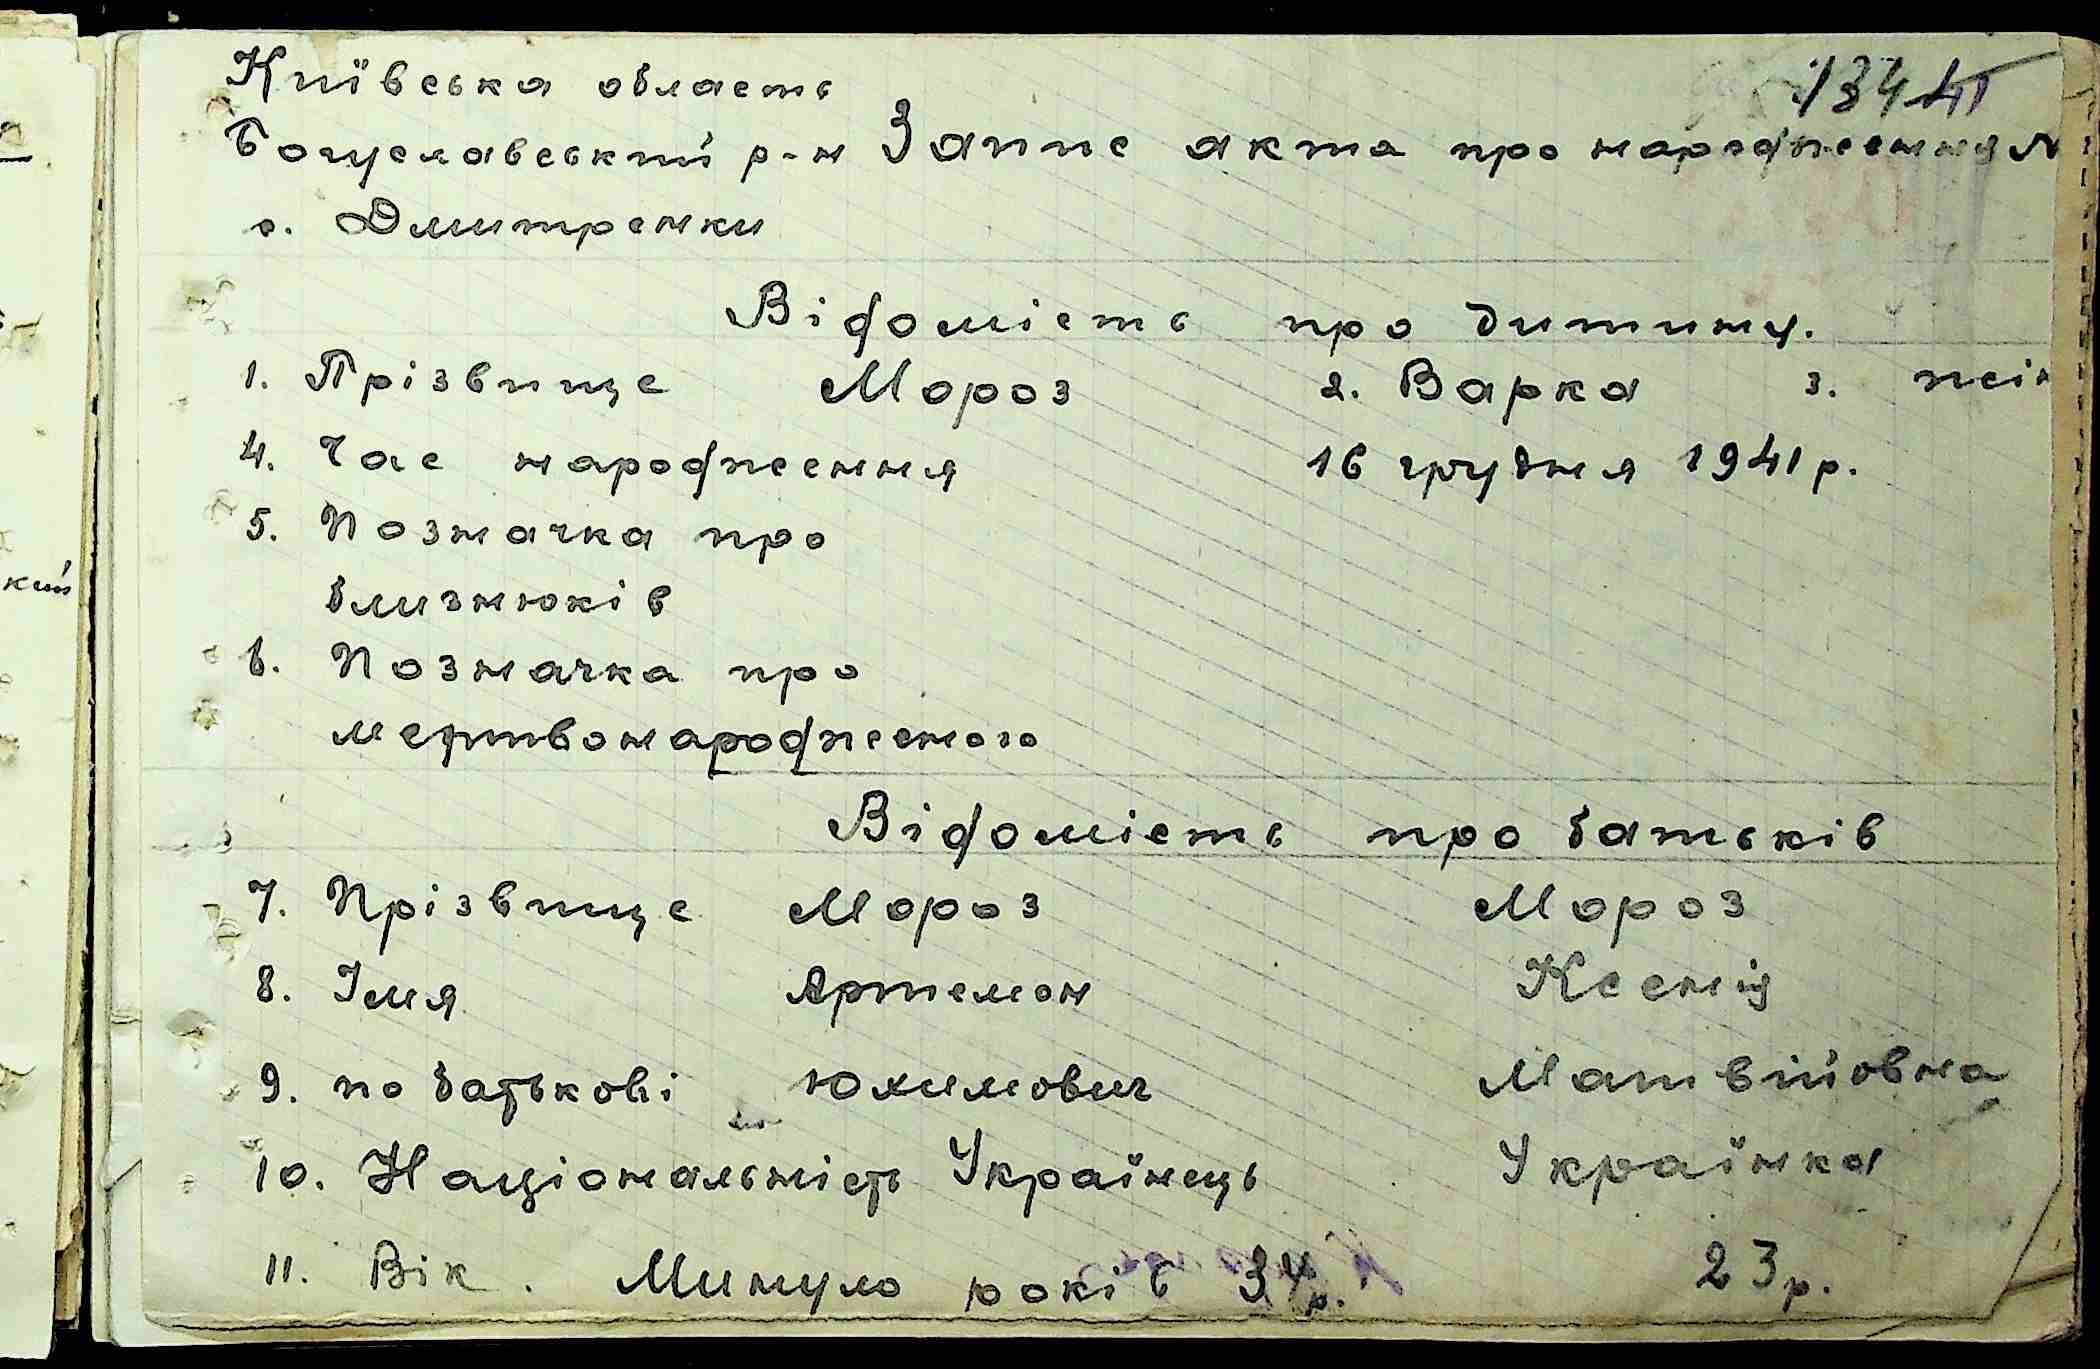 Київська область
Богуславський р-н Запис акта про народження №
с. Дмитренки
Відомість про дитину.
1. Прізвище Мороз 2. Варка 3. жін
4. Час народження 16 грудня 1941 р.
5. Позначка про
близнюків
6. Позначка про
мертвонародженого
Відомість про батьків
7. Прізвище Мороз Мороз
8. Імя Артемон Ксенія
9. по батькові Юхимович Матвійовна
10. Національність Українець Українка
11. Вік. Минуло років 34 р. 23 р.
кий